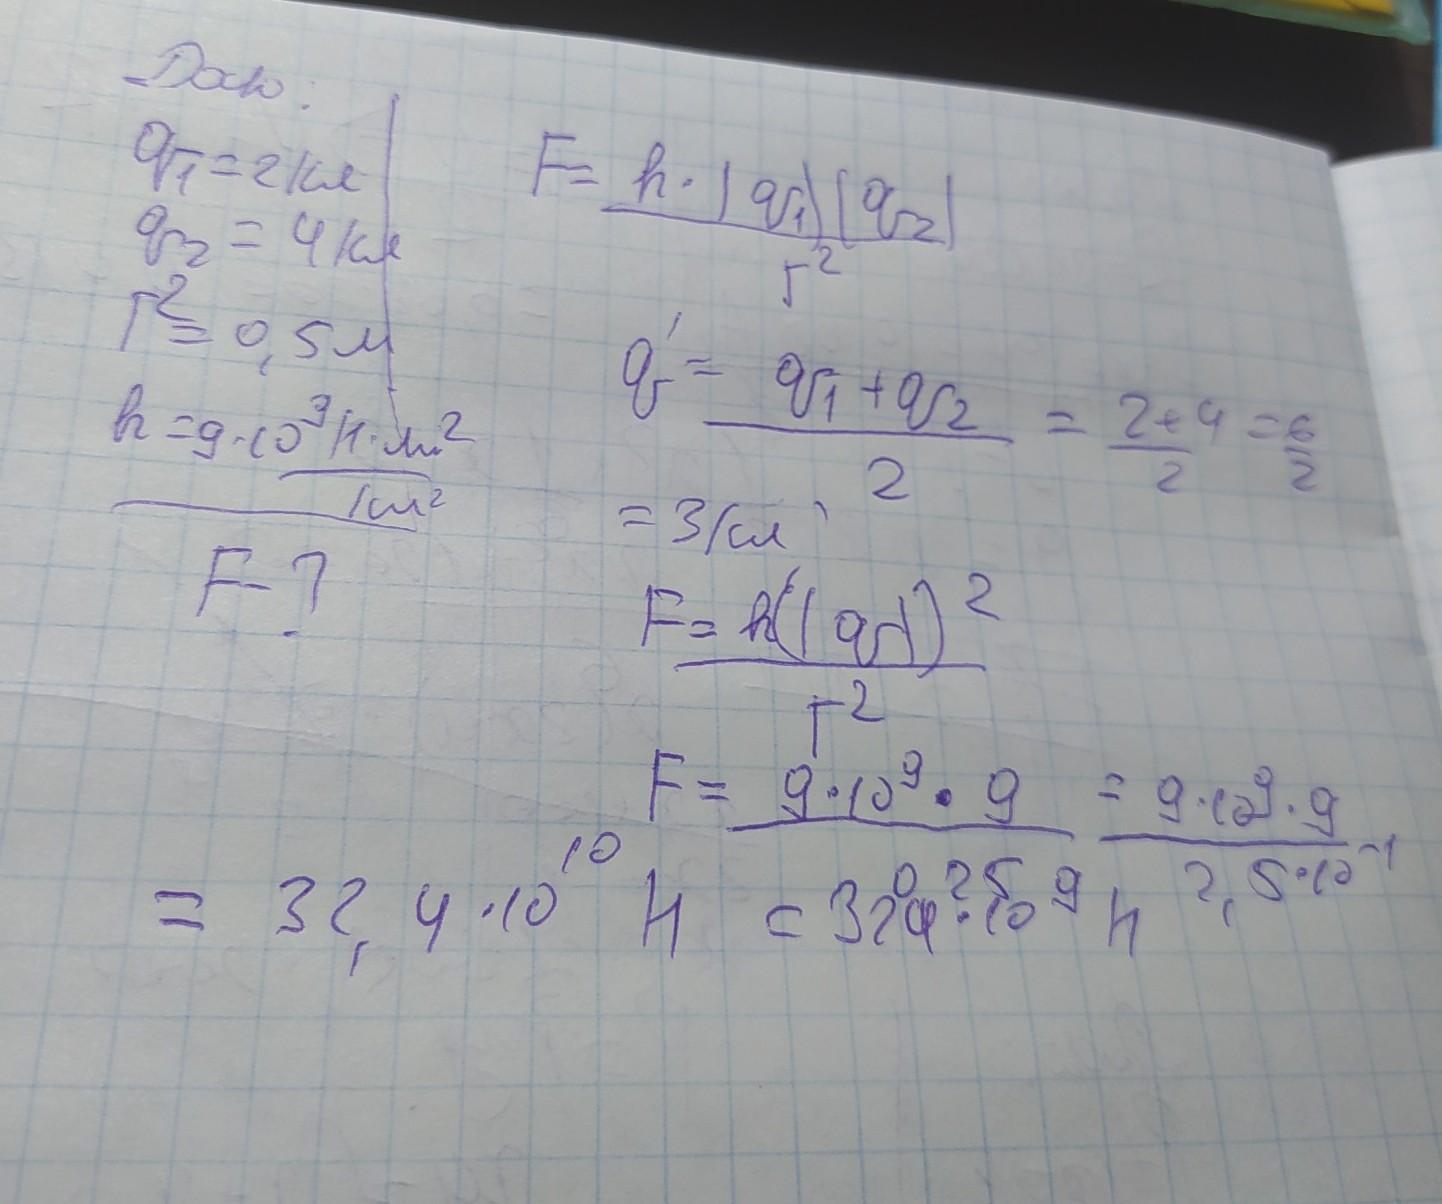 Дано:
q₁ = 2 Кл
q₂ = 4 Кл
r² = 0,5 м
k = 9·10⁹ Н·м²
Кл²
F - ?
F = k·|q₁||q₂|
r²
q' = q₁ + q₂ = 2+4 = 6
2 2 2
= 3 Кл
F = k(|q'|)²
r²
F = 9·10⁹·9 = 9·10⁹·9
0,25 2,5·10⁻¹
= 32,4·10¹⁰ Н = 324·10⁹ Н